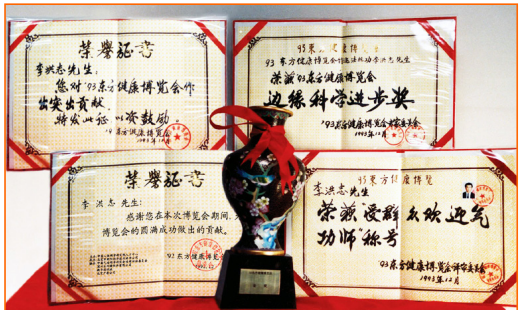 荣誉证书
李洪志先生：
您对'93东方健康博览会作
出突出贡献，
特发此证 以资鼓励。
'93东方健康博览会
1993年12月
'93 东方健康博览会
李洪志先生
荣获'93东方健康博览会
边缘科学进步奖
'93东方健康博览会
1993年12月
荣誉证书
李洪志 先生：
感谢您在本次博览会期间，
博览会的圆满成功做出的贡献。
'93东方健康博览会
93东方健康博览
李洪志先生
荣获"受群众欢迎气
功师"称号
'93东方健康博览会评审委员会
1993年12月